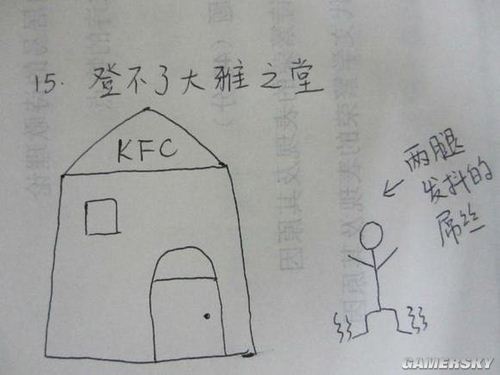 15. 登不了大雅之堂
KFC
两腿
发抖的
屌丝
GAMERSKY